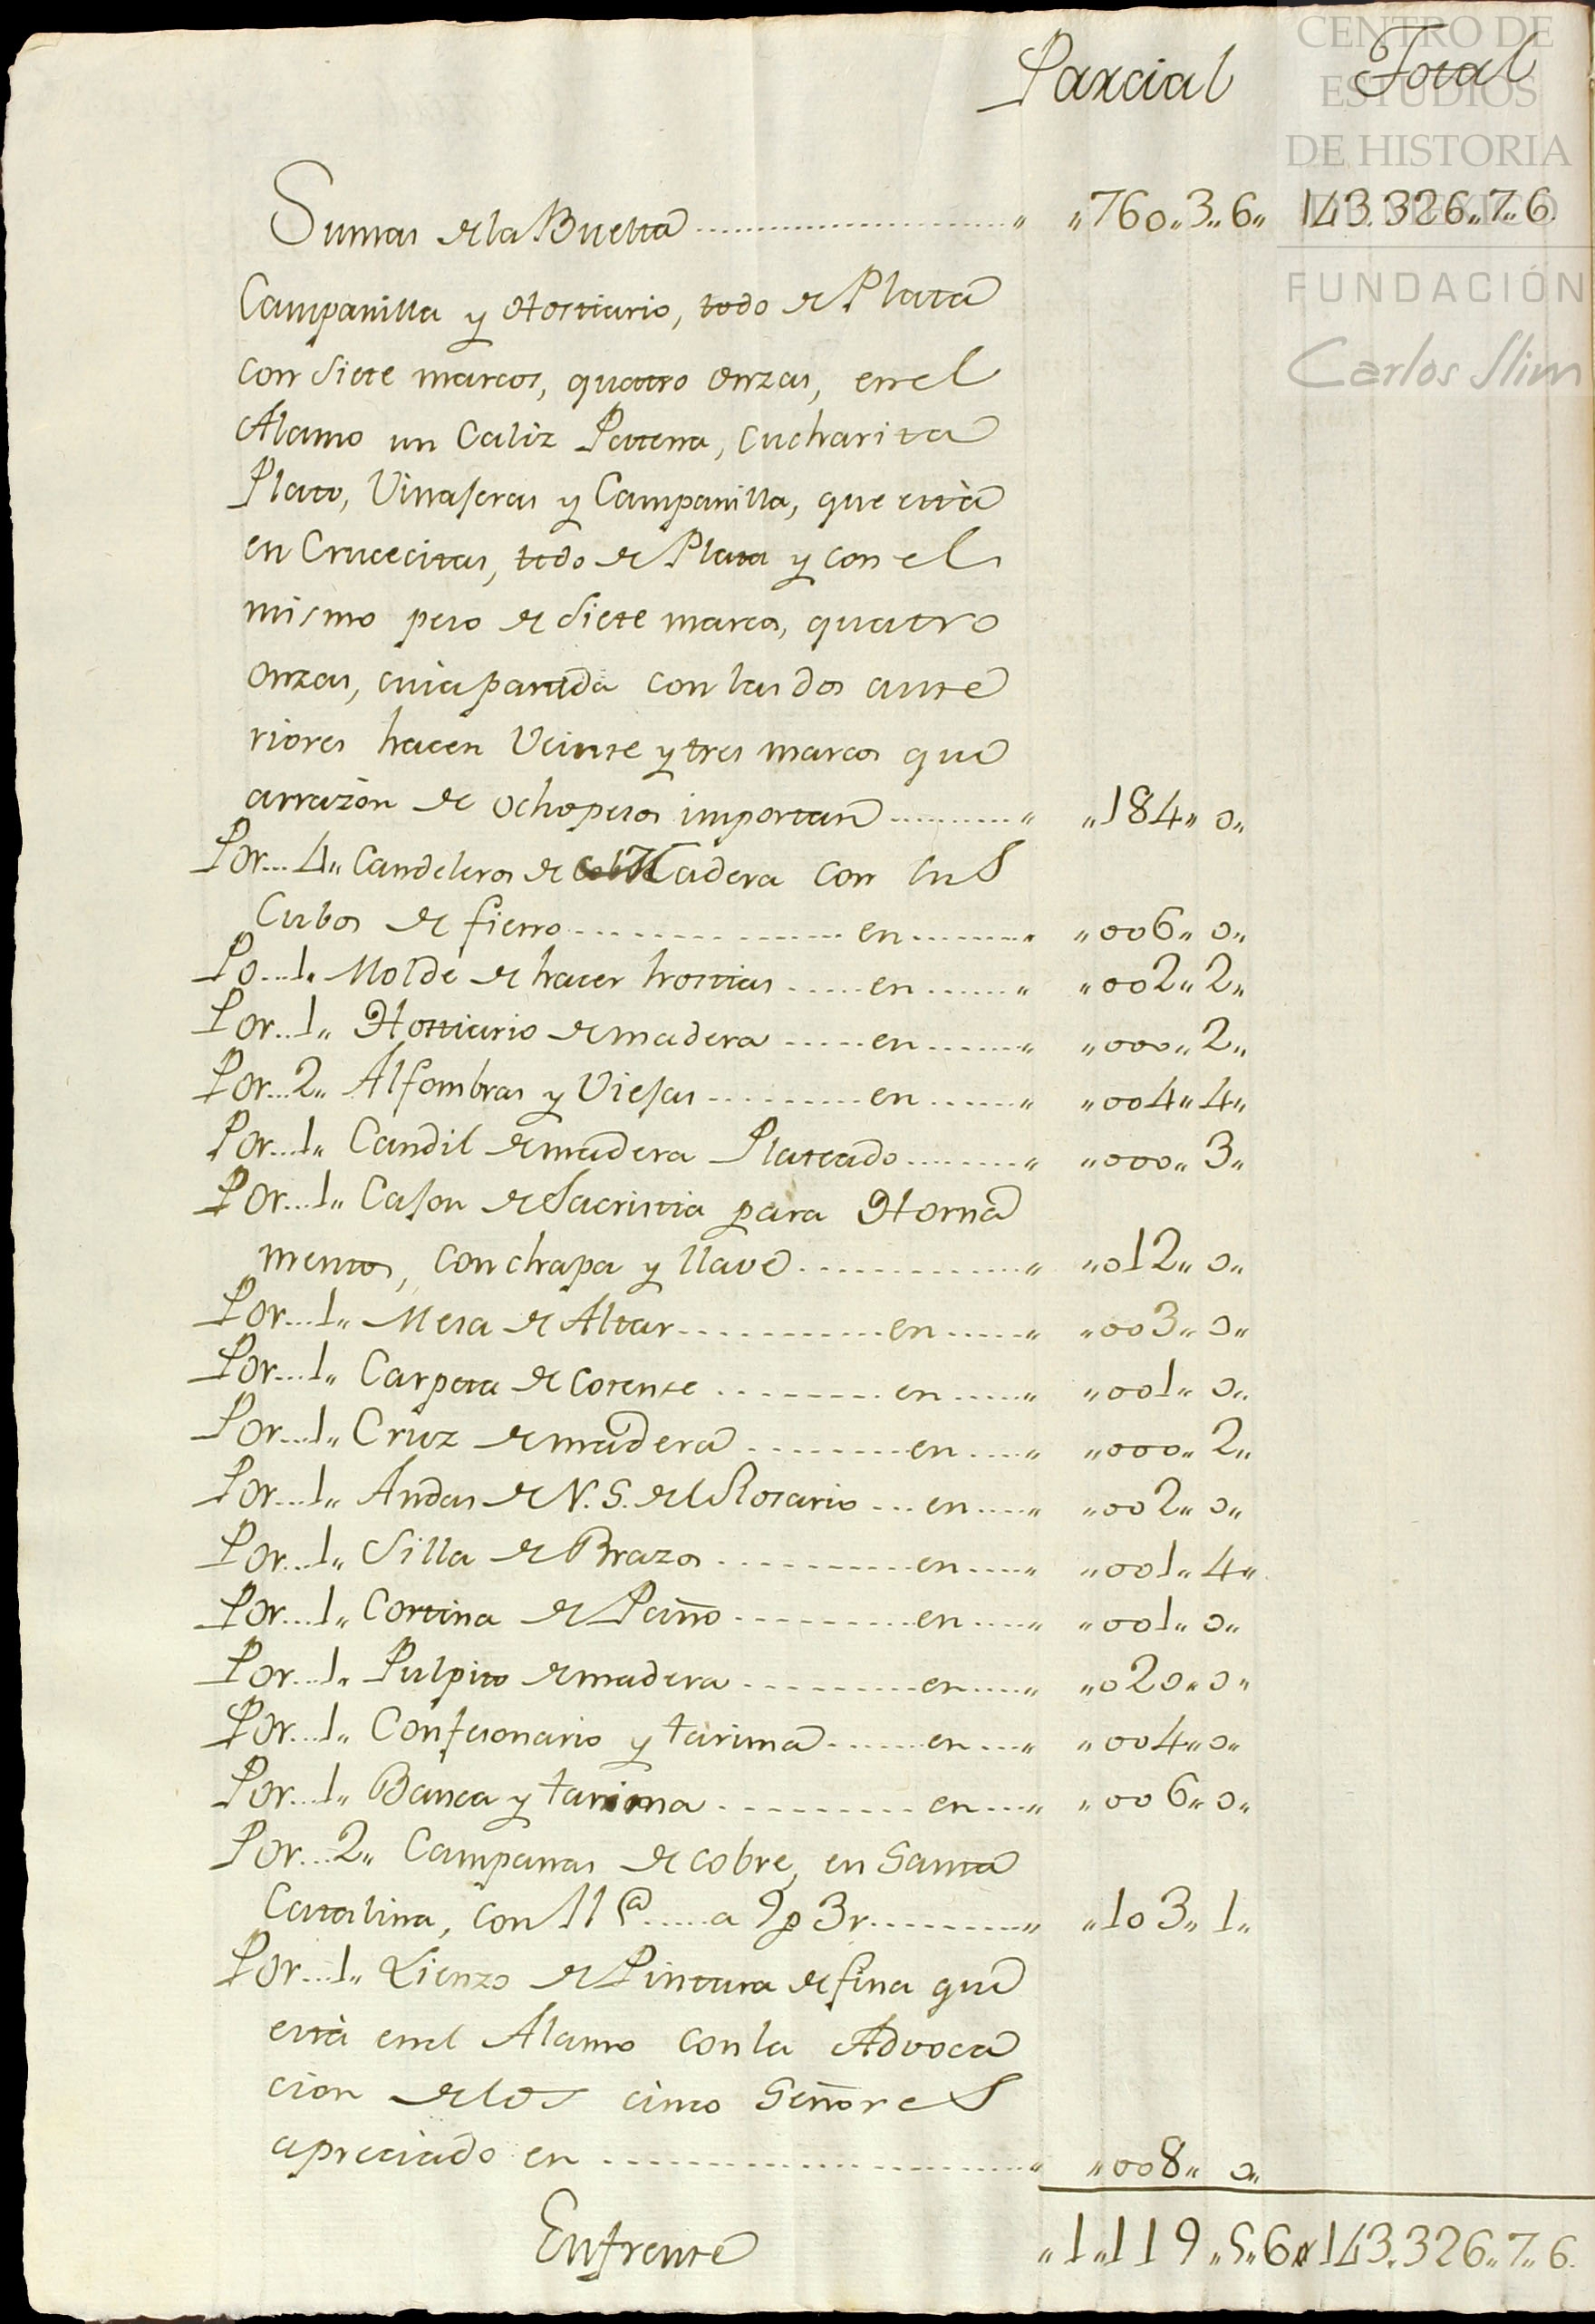 Parcial Total
Sumas de la Buelta ........ " "760"3"6" 143.326"7"6.
Campanilla y Hostiario, todo de Plata
con siete marcos, quatro onzas, en el
Alamo un Caliz Patena, cucharita
Plato, Vinajeras y Campanilla, que está
en Crucecitas, todo de Plata y con el
mismo peso de siete marcos, quatro
onzas, cuia partida con las dos ante
riores hacen Veinte y tres marcos que
arrazon de ocho pesos importan ........ " "184" 0"
Por... 4" Candeleros de Madera con sus
Cubos de fierro ........ en ........ " "006" 0"
Po... 1" Molde de hacer hostias ...... en ...... " "002" 2"
Por... 1" Hostiario de madera ..... en ...... " "000" 2"
Por... 2" Alfombras y Viejas ........ en ...... " "004" 4"
Por... 1" Candil de madera Plateado ........ " "000" 3"
Por... 1" Cajon de Sacristia para Horna
mentos, con chapa y llave ........ " "012" 0"
Por... 1" Mesa de Altar ........ en ..... " "003" 0"
Por... 1" Carpeta de cotense ........ en ..... " "001" 0"
Por... 1" Cruz de madera ........ en .... " "000" 2"
Por... 1" Andas de N. S. del Rosario ... en .... " "002" 0"
Por... 1" Silla de Brazos ........ en .... " "001" 4"
Por... 1" Cortina de Paño ........ en .... " "001" 0"
Por... 1" Pulpito de madera ........ en .... " "020" 0"
Por... 1" Confesionario y tarima ...... en ... " "004" 0"
Por... 1" Banca y tarima ........ en ... " "006" 0"
Por... 2" Campanas de cobre, en Santa
Catalina, con 11 @ ..... a 9 p 3 r ........ " "103" 1"
Por... 1" Lienzo de Pintura de fina que
está en el Alamo con la Advoca
cion de los cinco Señores
apreciado en ........ " "008" 0"
Enfrente "1"119"5"6" 143.326"7"6.
CENTRO DE
ESTUDIOS
DE HISTORIA
DE MÉXICO
FUNDACIÓN
Carlos Slim